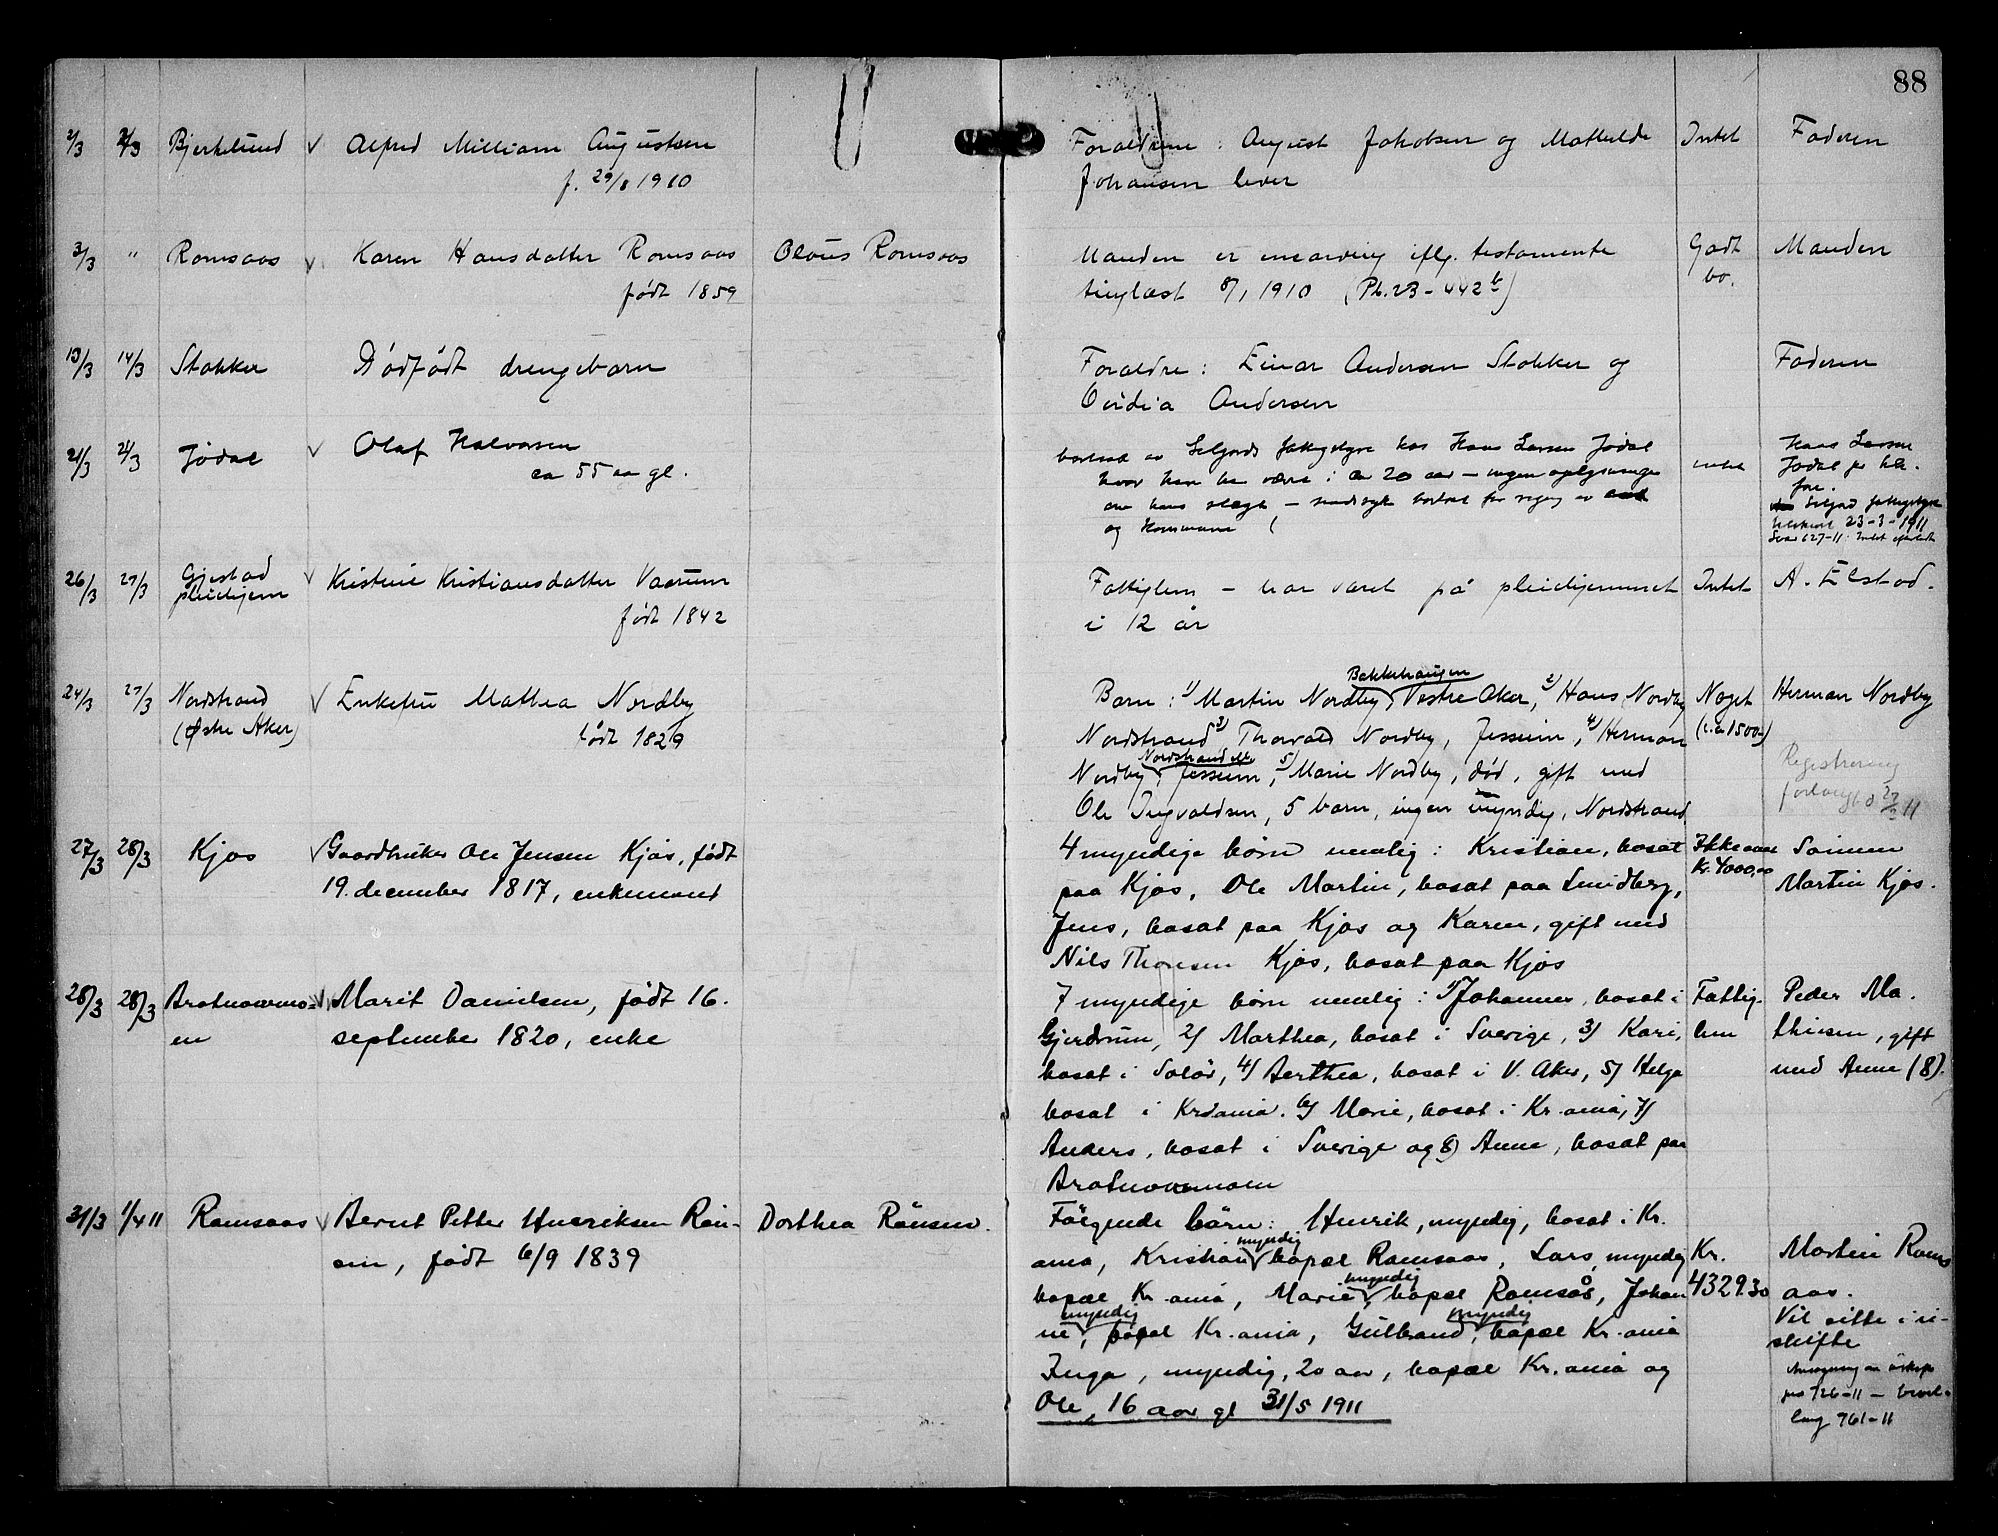 88
2/3 2/3 Bjerkelund v Alfred William Augustsen
f. 29/8 1910
Forældrene : August Jakobsen og Mathilde
Johansen lever
Intet
Faderen
3/3 " Romsaas v Karen Hansdatter Romsaas
født 1859
Olaus Romsaas
Manden er enearving iflg. testamente
tinglæst 8/1 1910 (Pb. 23 - 442 b)
Godt
bo.
Manden
13/3 14/3 Stokker Dødfødt drengebarn
Forældre : Einar Andersen Stokker og
Ovidia Andersen
Faderen
21/3 21/3 Jødal v Olaf Halvorsen
ca 55 aa gl.
bortsat av Seljords fattigstyre hos Hans Larsen Jødal
hvor han har været i ca 20 aar - ingen oplysninger
om hans slægt - sindssyk bortsat for regning av
og Kommune
intet
Hans Larsen
Jødal pr tele-
fon.
Seljord fattigstyre
tilskrevet 23-3-1911
Svar 627-11: Intet efterladt
26/3 27/3 Gjestad
pleiehjem
v Kristine Kristiansdatter Vaarum
født 1842
Fattiglem - har været på pleiehjemmet
i 12 år
Intet
A. Elstad.
24/3 27/3 Nordstrand
(Østre Aker)
v Enkefru Mathea Nordby
født 1829
Bakkehaugen
Barn : 1) Martin Nordby, Vestre Aker, 2) Hans Nordby
Nordstrand 3) Thorvald Nordby, Jessheim, 4) Herman
Nordstrand
Nordby, Jessheim, 5) Marie Nordby, død, gift med
Ole Ingvaldsen, 5 barn, ingen myndig, Nordstrand
Noget
(ca 1500)
Herman Nordby
Registrering
forlangt d 27/3 11
27/3 28/3 Kjos v Gaardbruker Ole Jensen Kjos, født
19. december 1817, enkemand
4 myndige børn nemlig : Kristian, bosat
paa Kjos, Ole Martin, bosat paa Smidberg,
Jens, bosat paa Kjos og Karen, gift med
Nils Thoresen Kjos, bosat paa Kjos
Ikke over
Kr. 4000,00
Sønnen
Martin Kjos.
28/3 28/3 v Marit Danielsen, født 16.
en
september 1820, enke
7 myndige børn nemlig : 1) Johannes, bosat i
Gjerdrum, 2) Marthea, bosat i Sverige, 3) Kari,
bosat i Solør, 4) Berthea, bosat i V. Aker, 5) Helga
bosat i Kristiania. 6) Marie, bosat i Kr.ania, 7)
Anders, bosat i Sverige og 8) Anne, bosat paa
Fattig-
lem
Peder Ma-
thisen, gift
med Anne (8).
31/3 1/4 11 Romsaas v Bernt Petter Henriksen Røn-
sen, født 6/9 1839
Dorthea Rønsen.
Følgende børn : Henrik, myndig, bosat i Kr.
myndig
ania, Kristian bopæl Romsaas, Lars, myndig
myndig
bopæl Kr.ania, Marie, bopæl Romsås, Johan
myndig myndig
ne, bopæl Kr.ania, Gulbrand, bopæl Kr.ania
Inga, myndig, 20 aar, bopæl Kr.ania og
Ole, 16 aar gl 31/5 1911
Kr.
4329.30
Martin Roms
aas.
Vil sitte i u-
skifte
Ansøgning om uskifte
jnr 726-11 - bevil-
ling 761-11